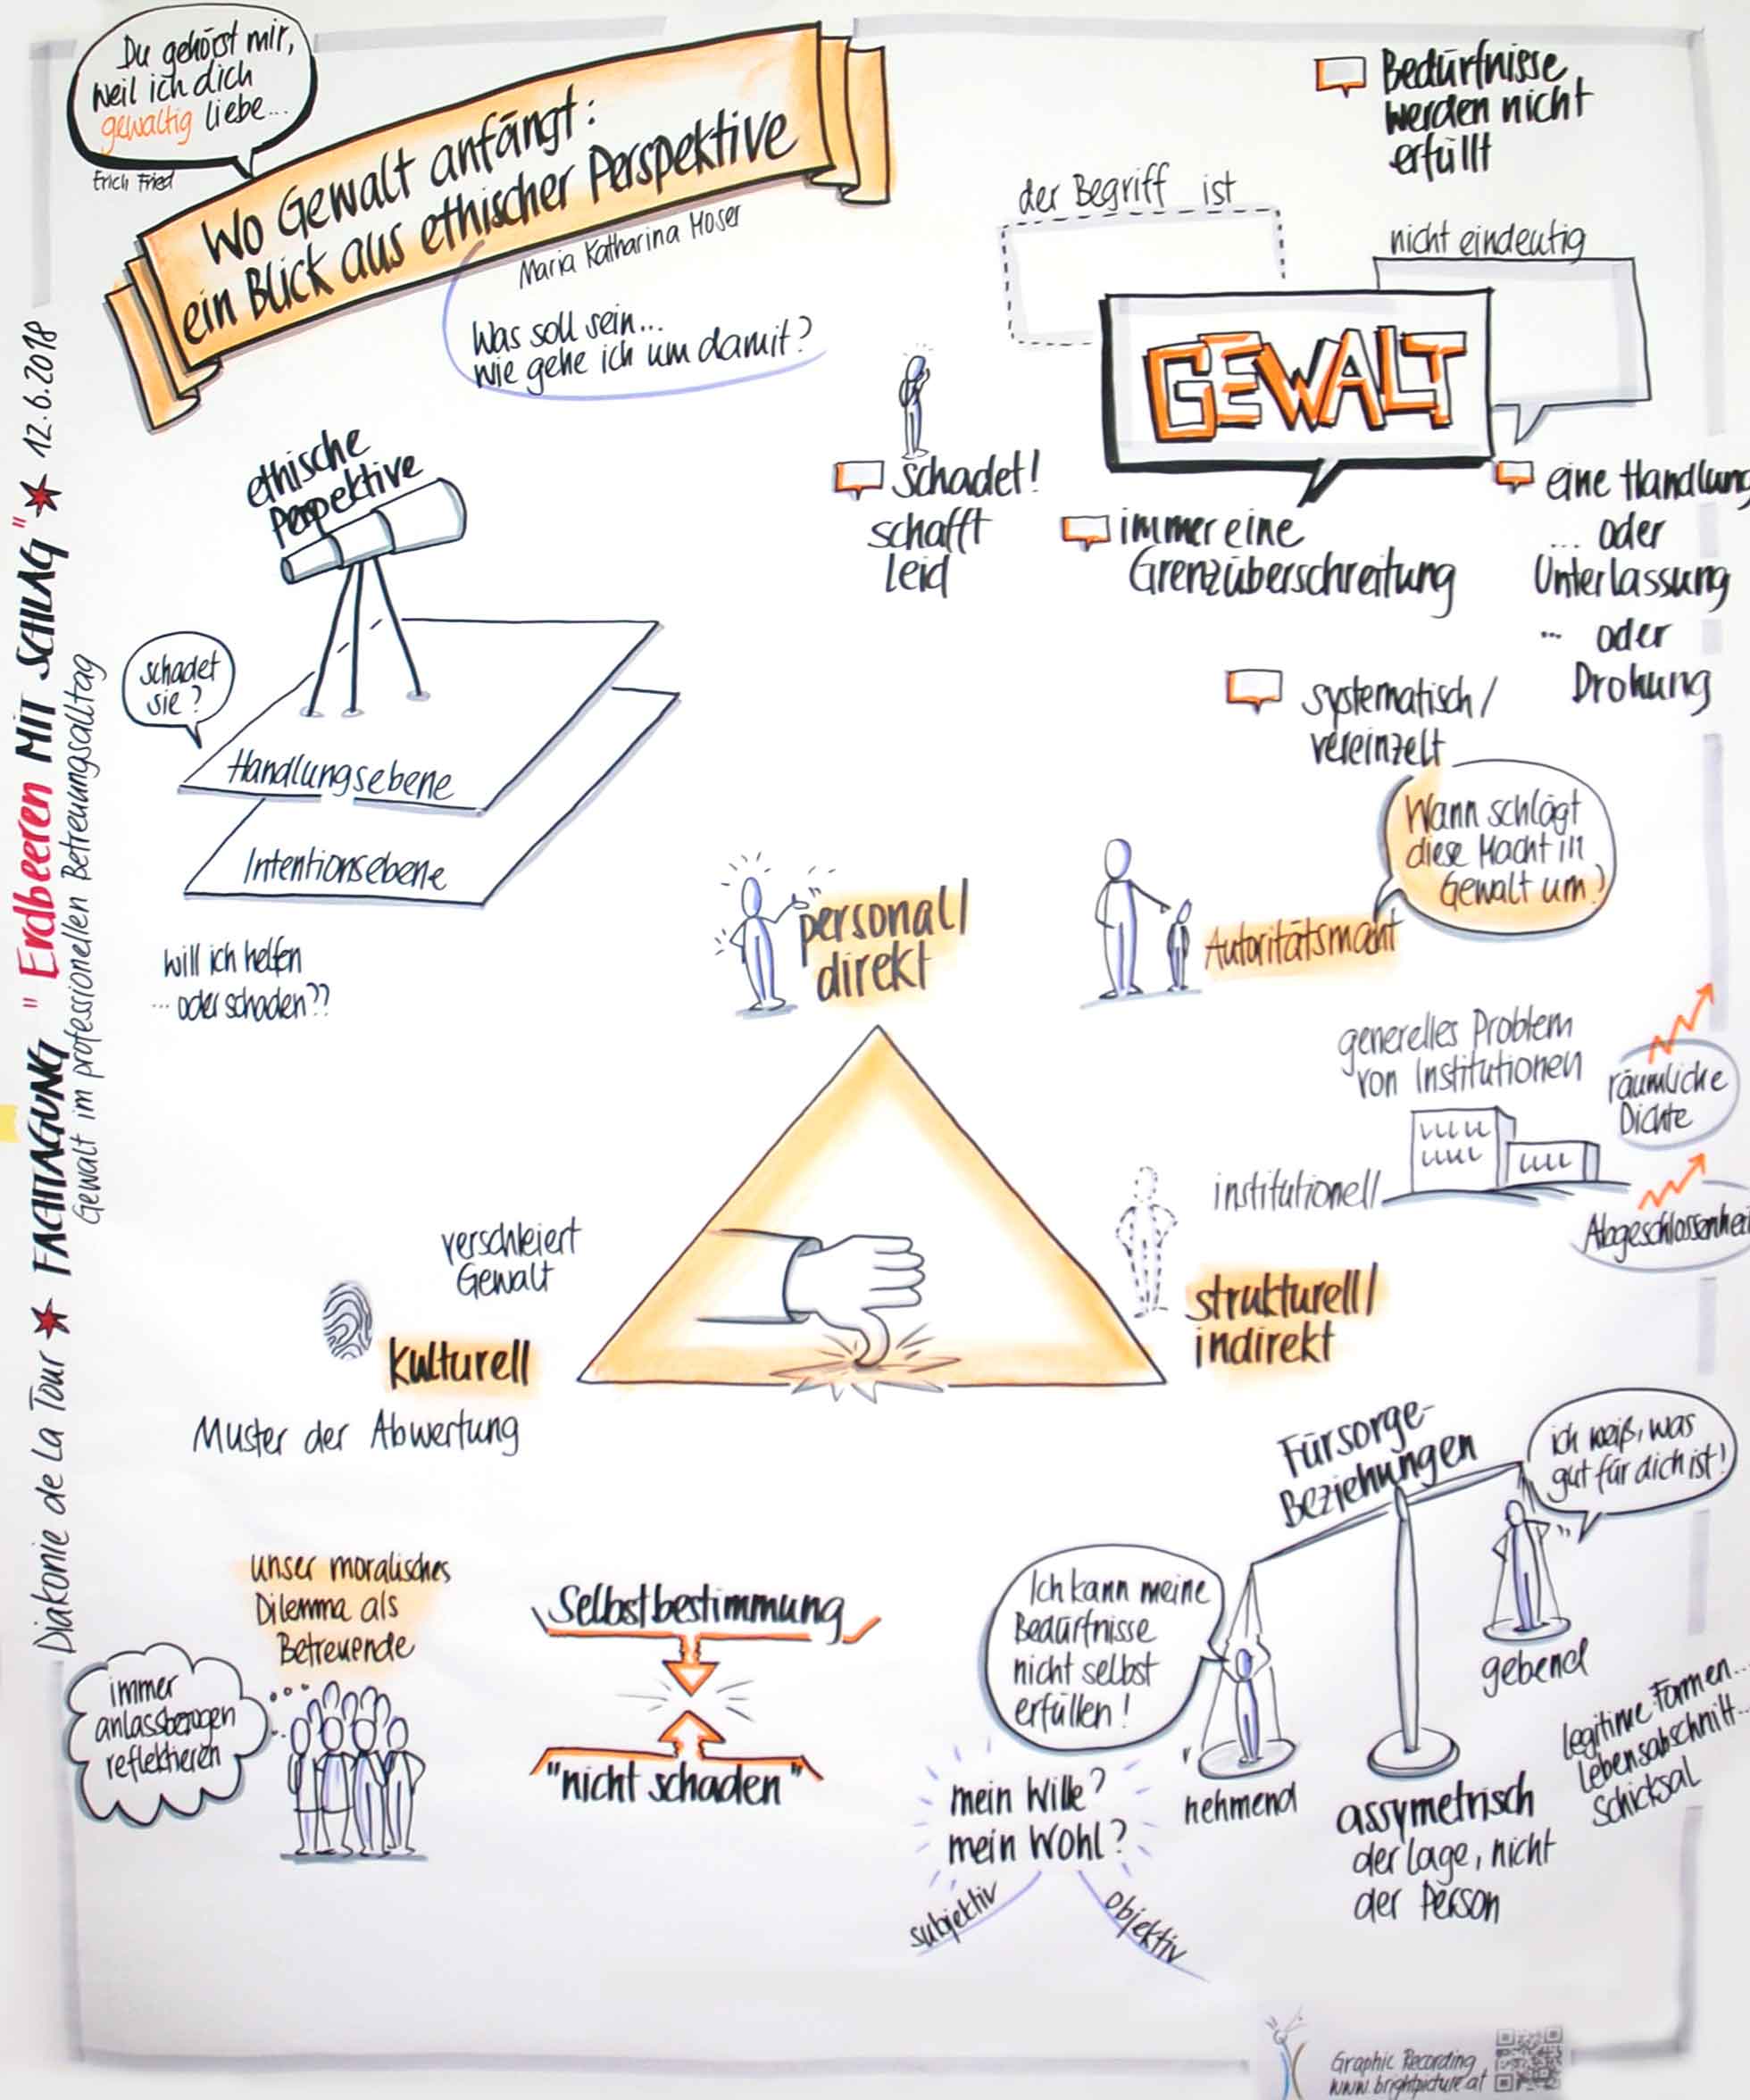 Du gehörst mir,
weil ich dich
gewaltig liebe...
Erich Fried
Wo Gewalt anfängt:
ein Blick aus ethischer Perspektive
Maria Katharina Moser
Was soll sein...
wie gehe ich um damit?
Diakonie de La Tour ★ FACHTAGUNG "Erdbeeren MIT SCHLAG" ★ 12.6.2018
Gewalt im professionellen Betreuungsalltag
Bedürfnisse
werden nicht
erfüllt
der Begriff ist
nicht eindeutig
GEWALT
schadet!
schafft
Leid
immer eine
Grenzüberschreitung
eine Handlung
... oder
Unterlassung
... oder
Drohung
systematisch/
vereinzelt
ethische
Perspektive
schadet
sie?
Handlungsebene
Intentionsebene
will ich helfen
... oder schaden??
personal/
direkt
Wann schlägt
diese Macht in
Gewalt um?
Autoritätsmacht
generelles Problem
von Institutionen
räumliche
Dichte
institutionell
Abgeschlossenheit
strukturell/
indirekt
verschleiert
Gewalt
kulturell
Muster der Abwertung
Fürsorge-
Beziehungen
ich weiß, was
gut für dich ist!
Ich kann meine
Bedürfnisse
nicht selbst
erfüllen!
gebend
nehmend
legitime Formen...
Lebensabschnitt...
Schicksal
assymetrisch
der Lage, nicht
der Person
mein Wille?
mein Wohl?
subjektiv
objektiv
unser moralisches
Dilemma als
Betreuende
immer
anlassbezogen
reflektieren
Selbstbestimmung
"nicht schaden"
Graphic Recording
www.brightpicture.at